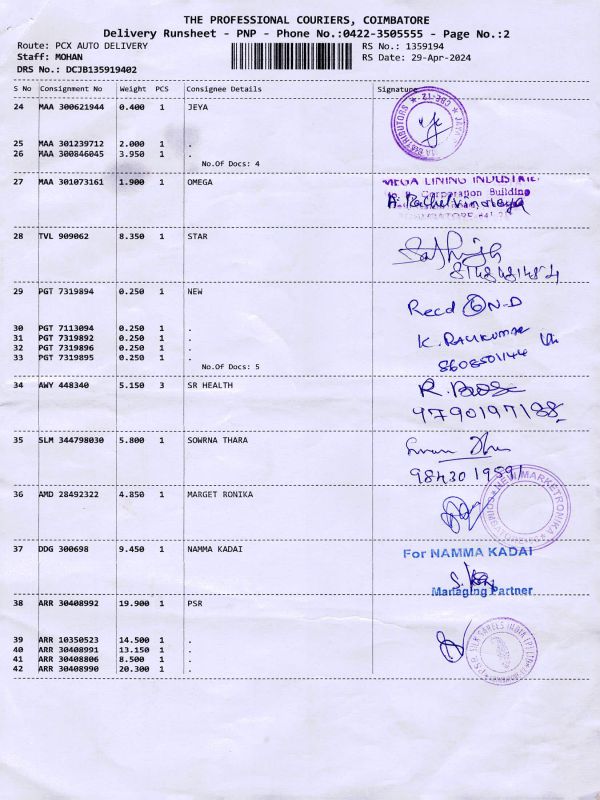 THE PROFESSIONAL COURIERS, COIMBATORE
Delivery Runsheet - PNP - Phone No.:0422-3505555 - Page No.:2
Route: PCX AUTO DELIVERY RS No.: 1359194
Staff: MOHAN RS Date: 29-Apr-2024
DRS No.: DCJB135919402
S No Consignment No Weight PCS Consignee Details Signature
24 MAA 300621944 0.400 1 JEYA
25 MAA 301239712 2.000 1 .
26 MAA 300846045 3.950 1 .
No.Of Docs: 4
27 MAA 301073161 1.900 1 OMEGA
MEGA LINING INDUSTRIE
Corporation Building
28 TVL 909062 8.350 1 STAR
Sathish
29 PGT 7319894 0.250 1 NEW
Recd
30 PGT 7113094 0.250 1 .
31 PGT 7319892 0.250 1 .
32 PGT 7319896 0.250 1 .
33 PGT 7319895 0.250 1 .
K. RAVIKUMAR
8608501144
No.Of Docs: 5
34 AWY 448340 5.150 3 SR HEALTH
9790197188
35 SLM 344798030 5.800 1 SOWRNA THARA
98430 19591
36 AMD 28492322 4.850 1 MARGET RONIKA
NEW MARKETRONIKA
37 DDG 300698 9.450 1 NAMMA KADAI
For NAMMA KADAI
Managing Partner
38 ARR 30408992 19.900 1 PSR
39 ARR 10350523 14.500 1 .
40 ARR 30408991 13.150 1 .
41 ARR 30408806 8.500 1 .
42 ARR 30408990 20.300 1 .